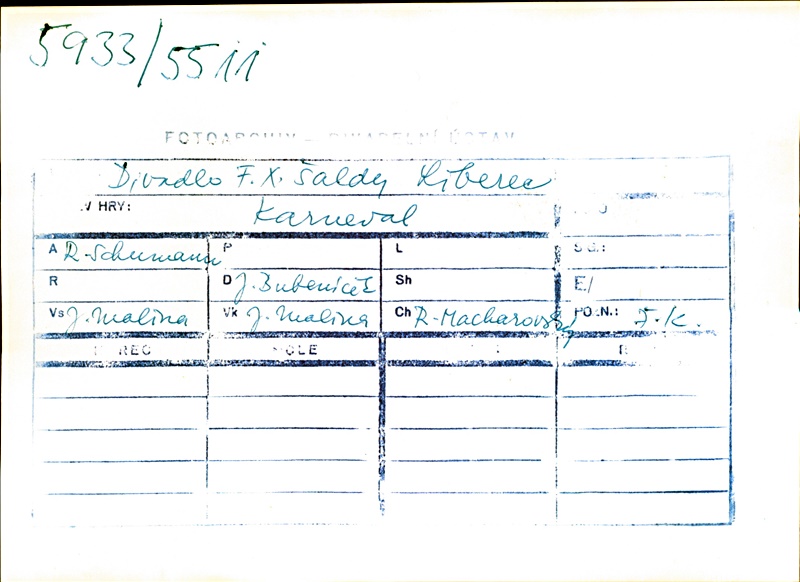 5933/5511
FOTOARCHIV – DIVADELNÍ ÚSTAV
Divadlo F. X. Šaldy Liberec
V HRY: Karneval
A R. Schumann P L
R D J. Bubeníček Sh E/
Vs J. Malina Vk J. Malina Ch R. Macharovský POZN.: F.K.